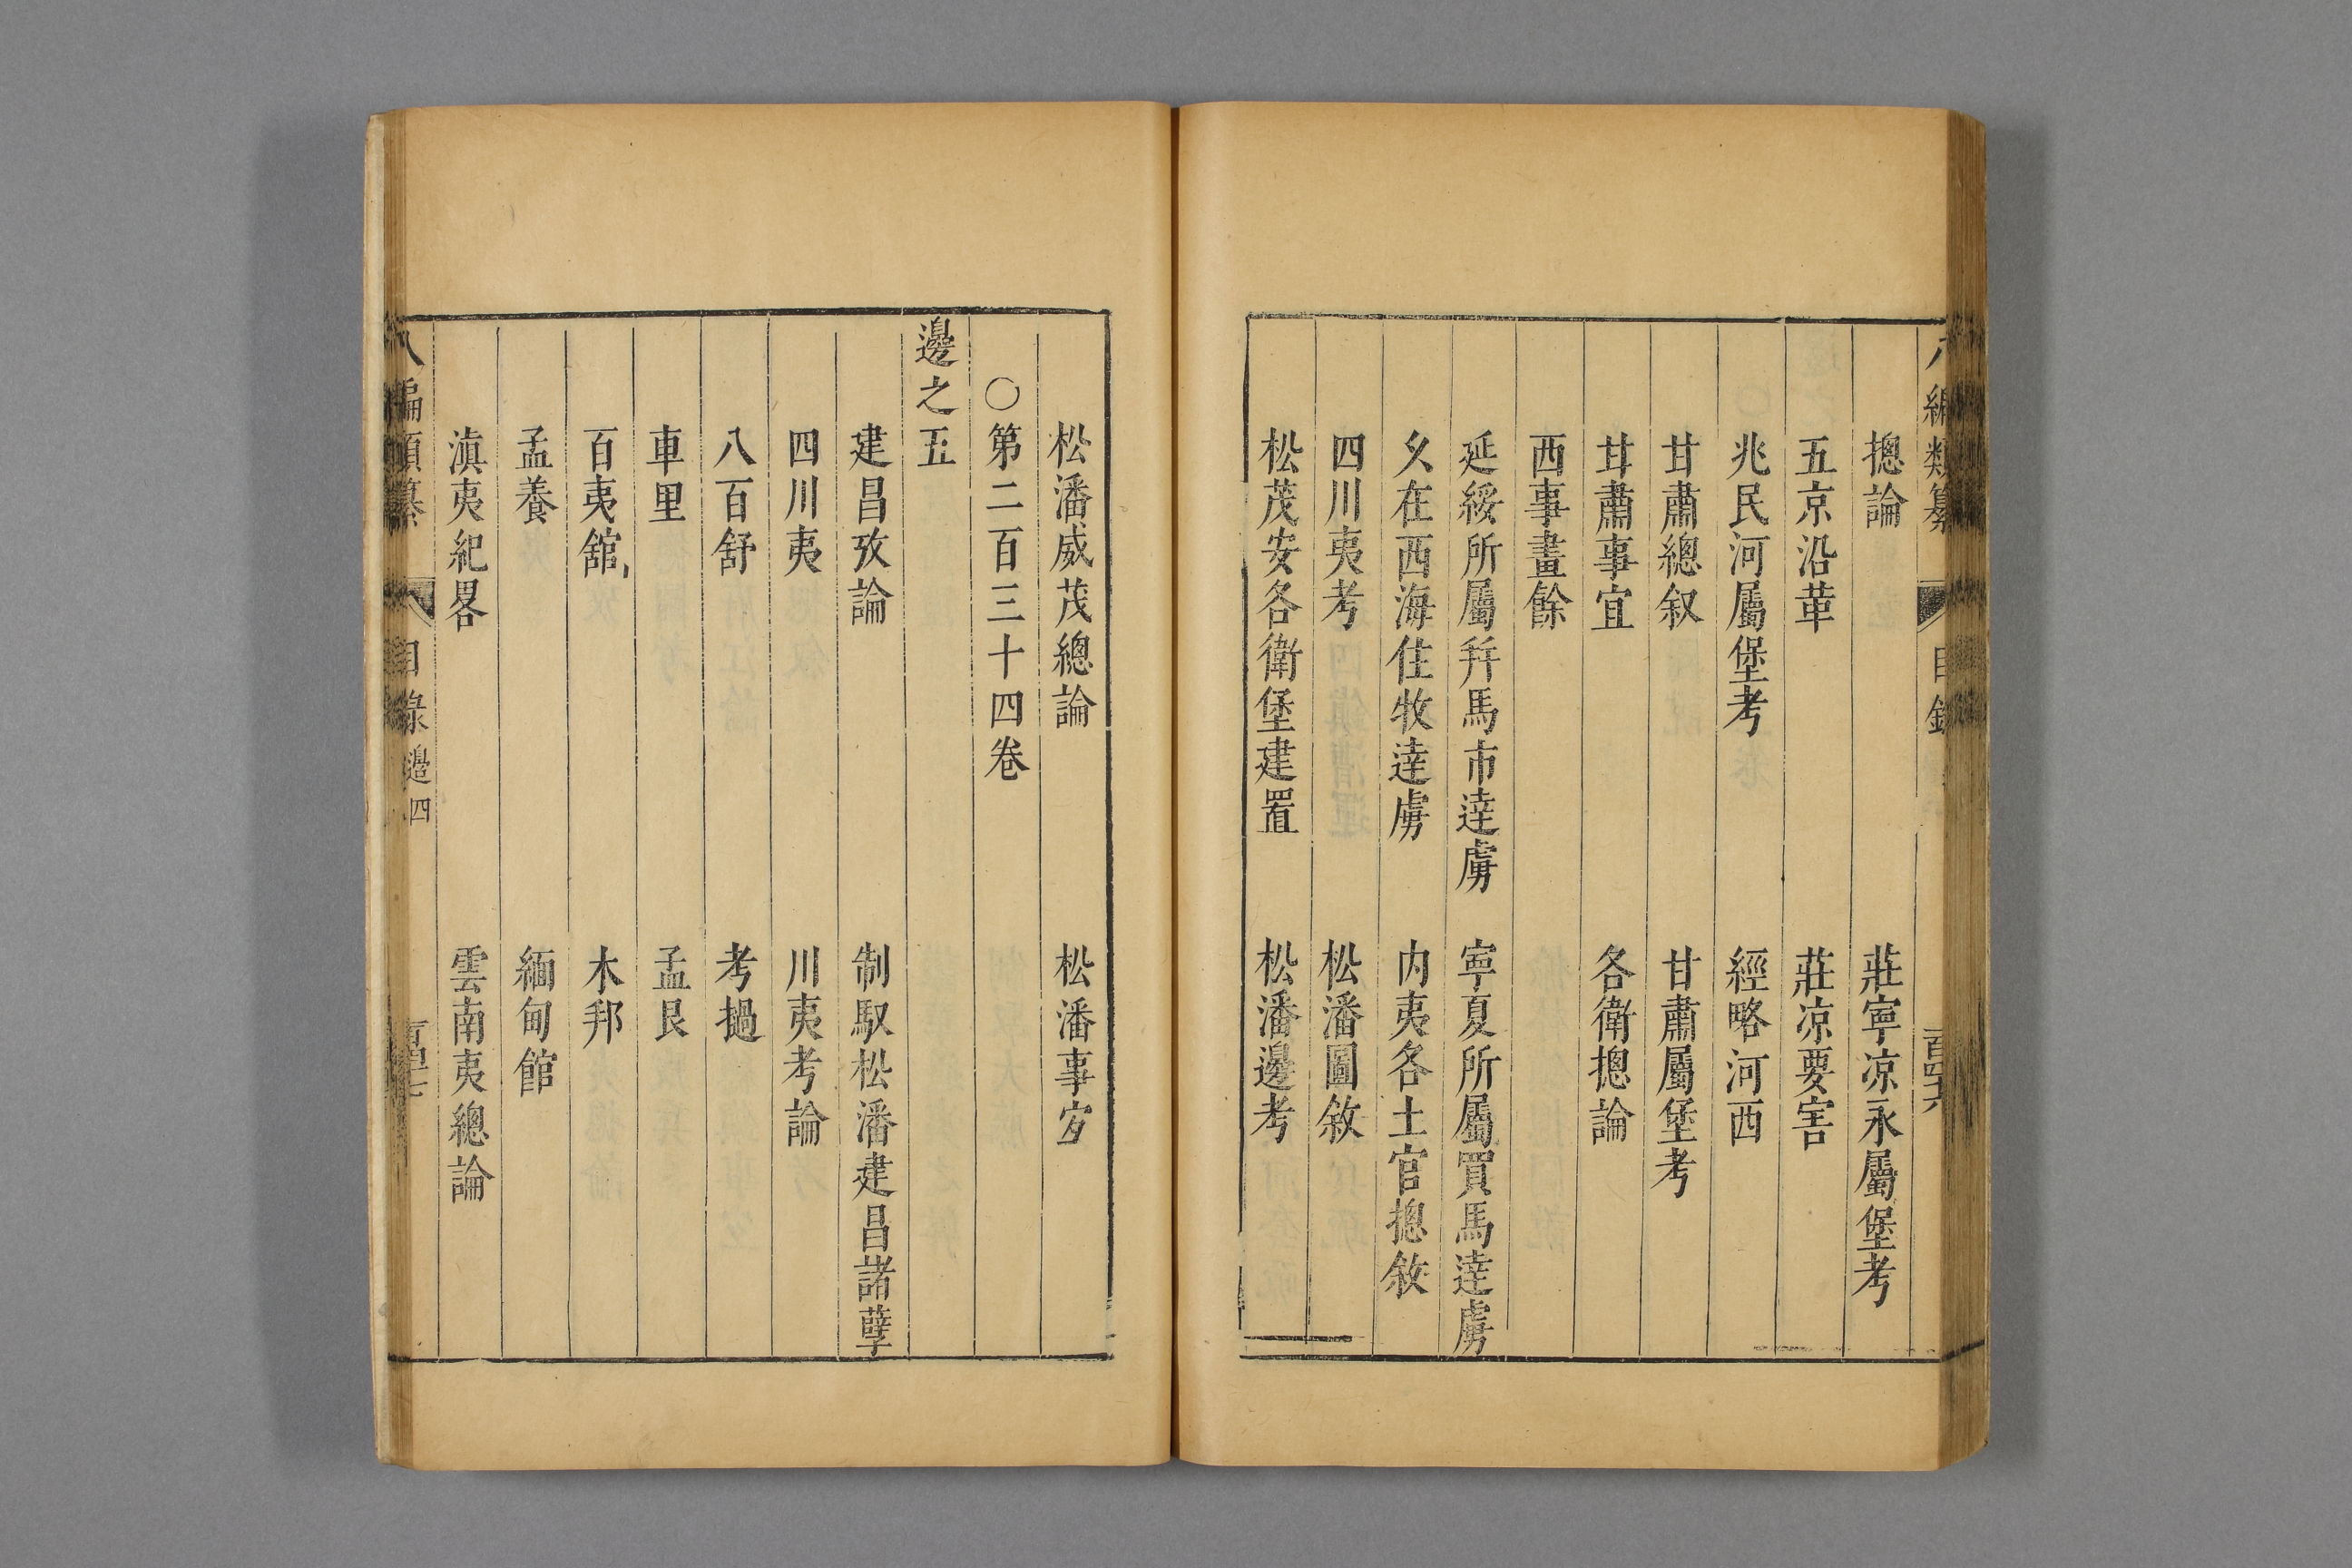 八編類纂 目錄 百四六
摠論 莊寜凉永屬堡考
五京沿革 莊凉要害
兆民河屬堡考 經略河西
甘肅總叙 甘肅屬堡考
甘肅事宜 各衛摠論
西事畫餘
延綏所屬并馬市逹虜 寜夏所屬買馬逹虜
久在西海住牧逹虜 内夷各土官摠敘
四川夷考 松潘圖敘
松茂安各衛堡建置 松潘邊考
松潘威茂總論 松潘事宜
○第二百三十四卷
邊之五
建昌攷論 制馭松潘建昌諸孽
四川夷 川夷考論
八百舒 考撾
車里 孟艮
百夷舘 木邦
孟養 緬甸館
滇夷紀畧 雲南夷總論
八編類纂 目錄 邊四 百四七